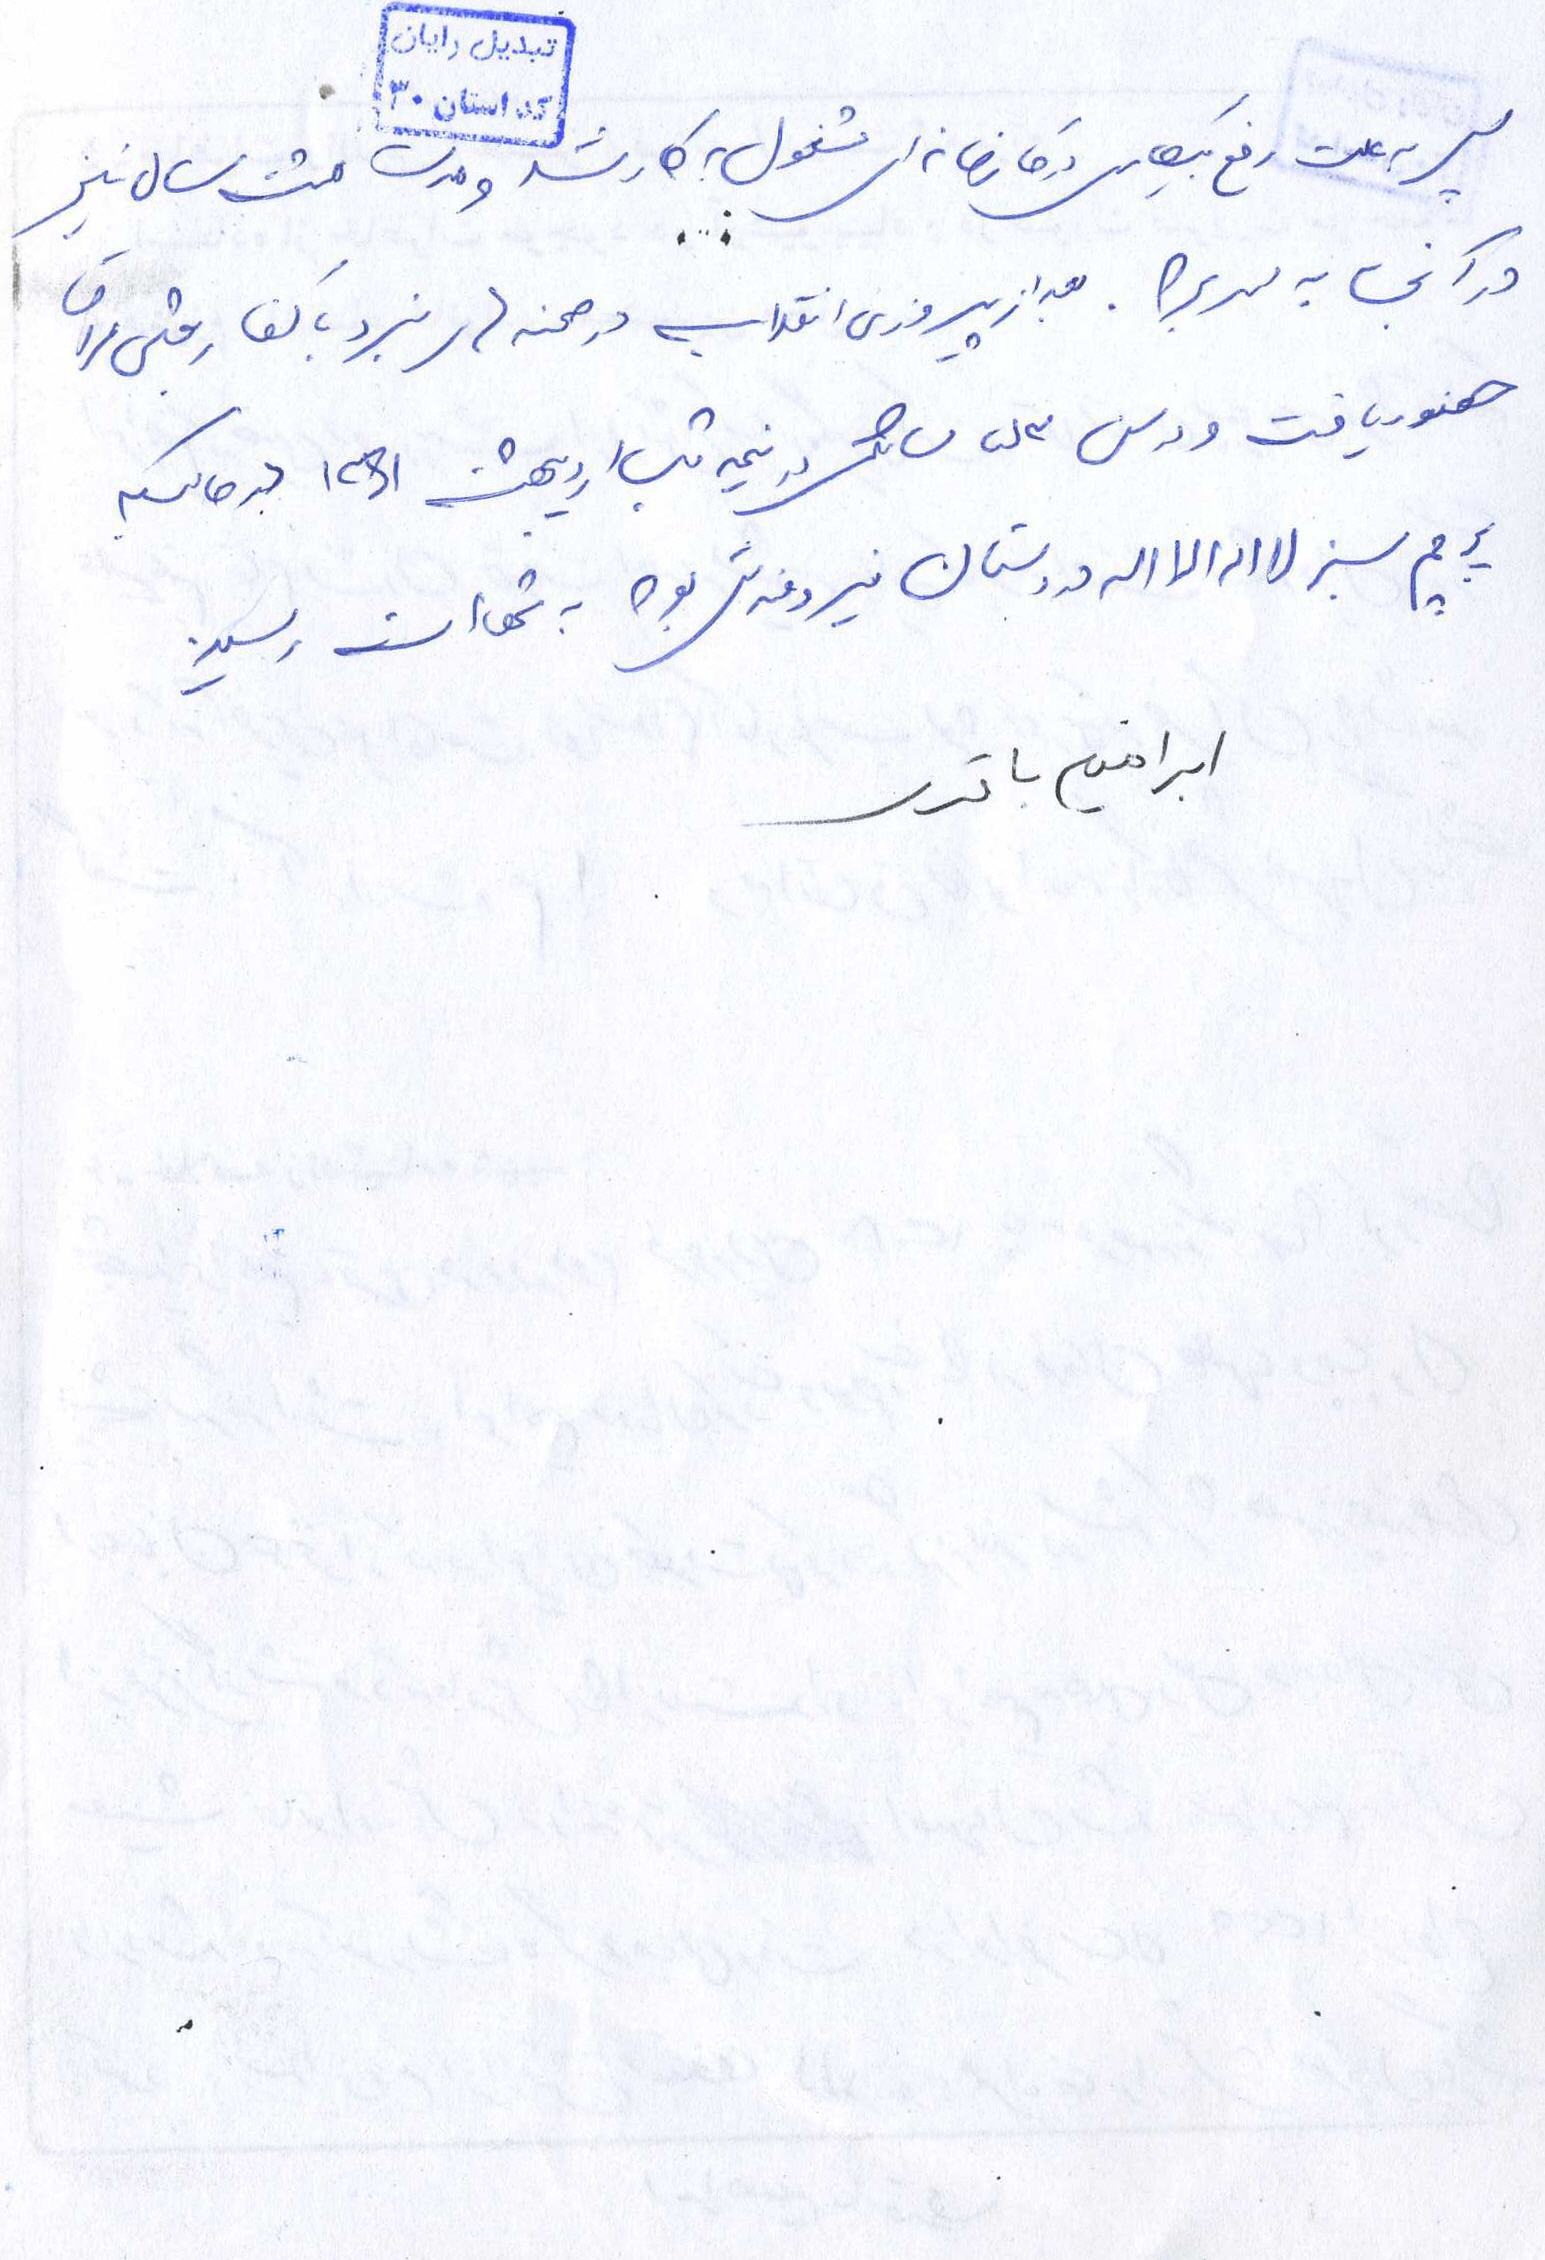 تبدیل رایان
کد استان ۳۰
پس به علت رفع بیکاری در کارخانه ای مشغول به کار شد و مدت هشت سال نیز
در آنجا به سر برد . بعد از پیروزی انقلاب در صحنه های نبرد با کفار بعثی عراق
حضور یافت و در سی سالگی در نیمه شب اردیبهشت ۱۳۶۱ در حالیکه
پرچم سبز لا اله الا اله در دستان نیرومندش بود به شهادت رسید.
ابراهیم باقری